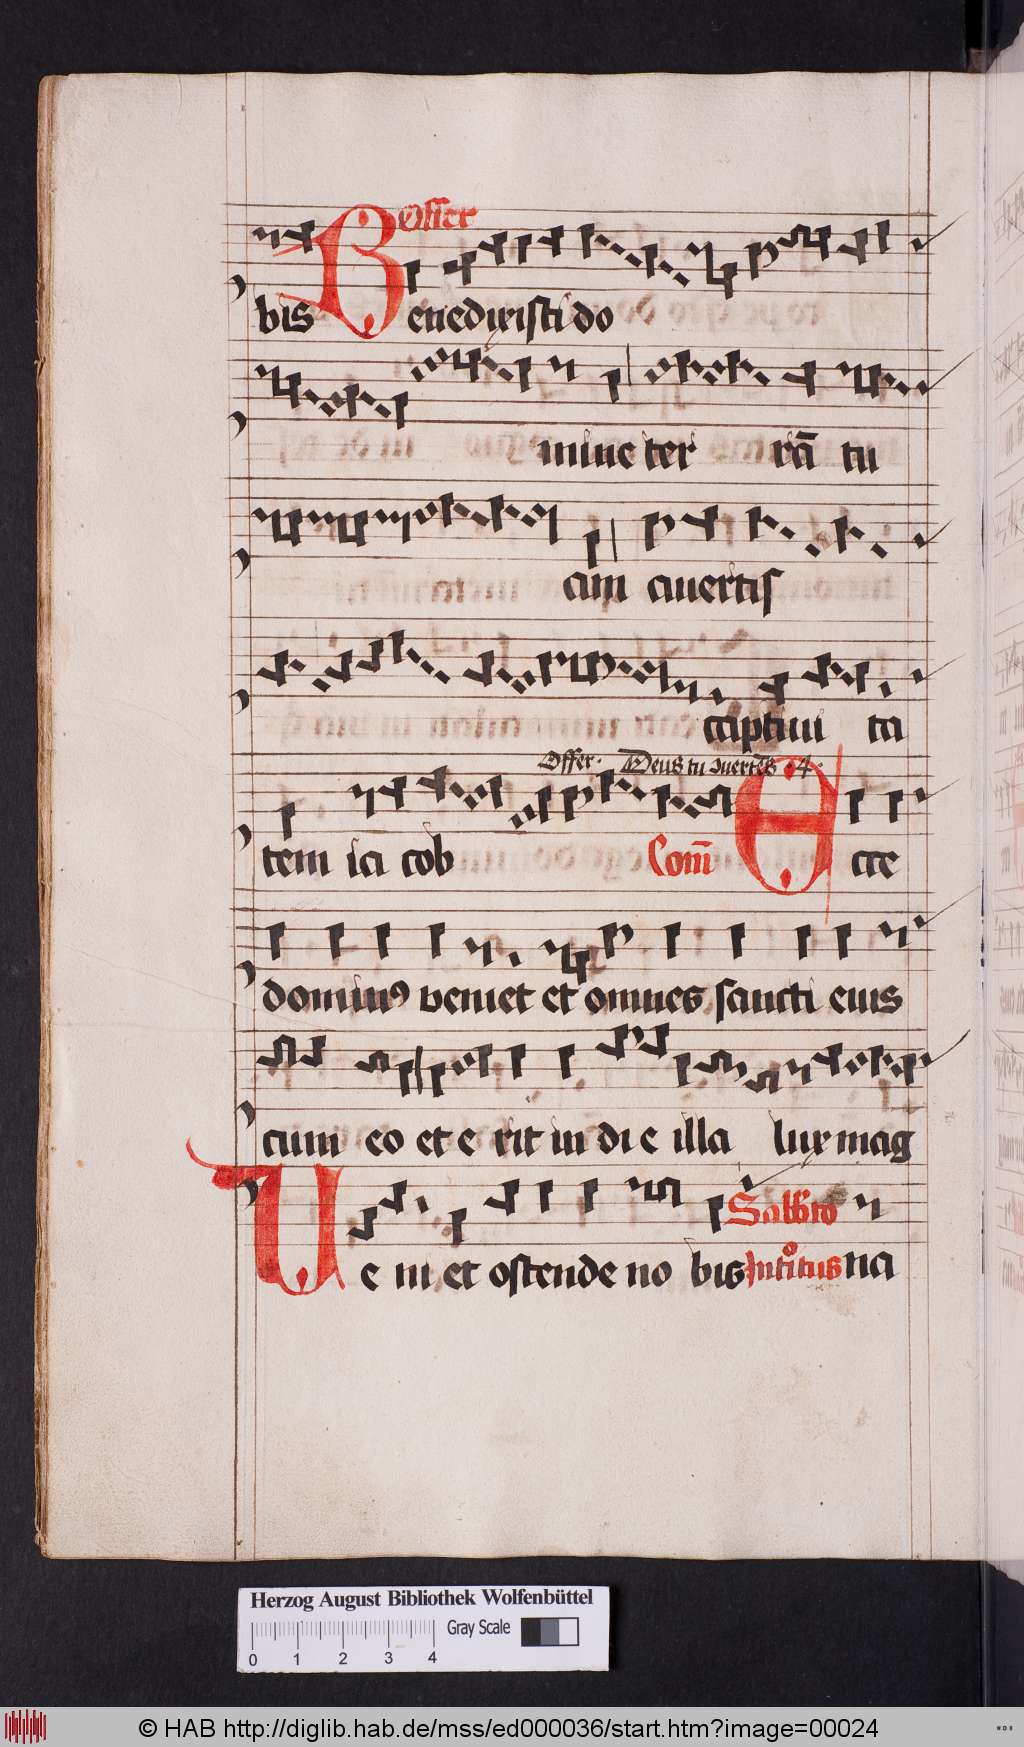 Offer
bis Benedixisti do
mine ter rā tu
am auertis
captiui ta
Offer. Deus tu ɔuertēs .4.
tem ia cob Com̄ Ecce
dominꝰ veniet et omnes sancti eius
cum eo et e rit in di e illa lux mag
Sabbto
Ue ni et ostende no bis Intͦitus na
Herzog August Bibliothek Wolfenbüttel
Gray Scale
0 1 2 3 4
© HAB http://diglib.hab.de/mss/ed000036/start.htm?image=00024